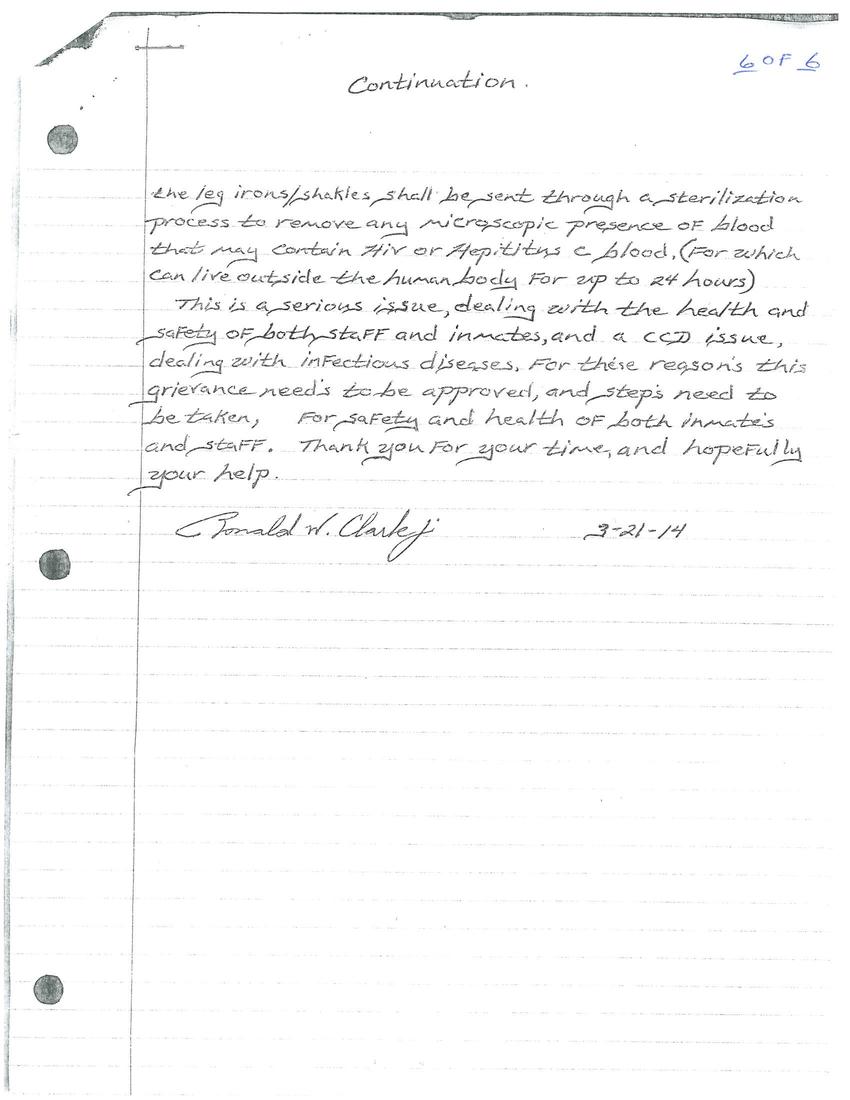 6 OF 6
Continuation.
the leg irons/shakles shall be sent through a sterilization
process to remove any microscopic presence of blood
that may contain Hiv or Hepititus c blood. (For which
can live outside the human body For up to 24 hours)
This is a serious issue, dealing with the health and
safety of both staff and inmates, and a CCD issue,
dealing with infectious diseases. For these reason's this
grievance need's to be approved, and step's need to
be taken, For safety and health of both inmate's
and staff. Thank you For your time, and hopefully
your help.
Ronald W. Clark jr 3-21-14